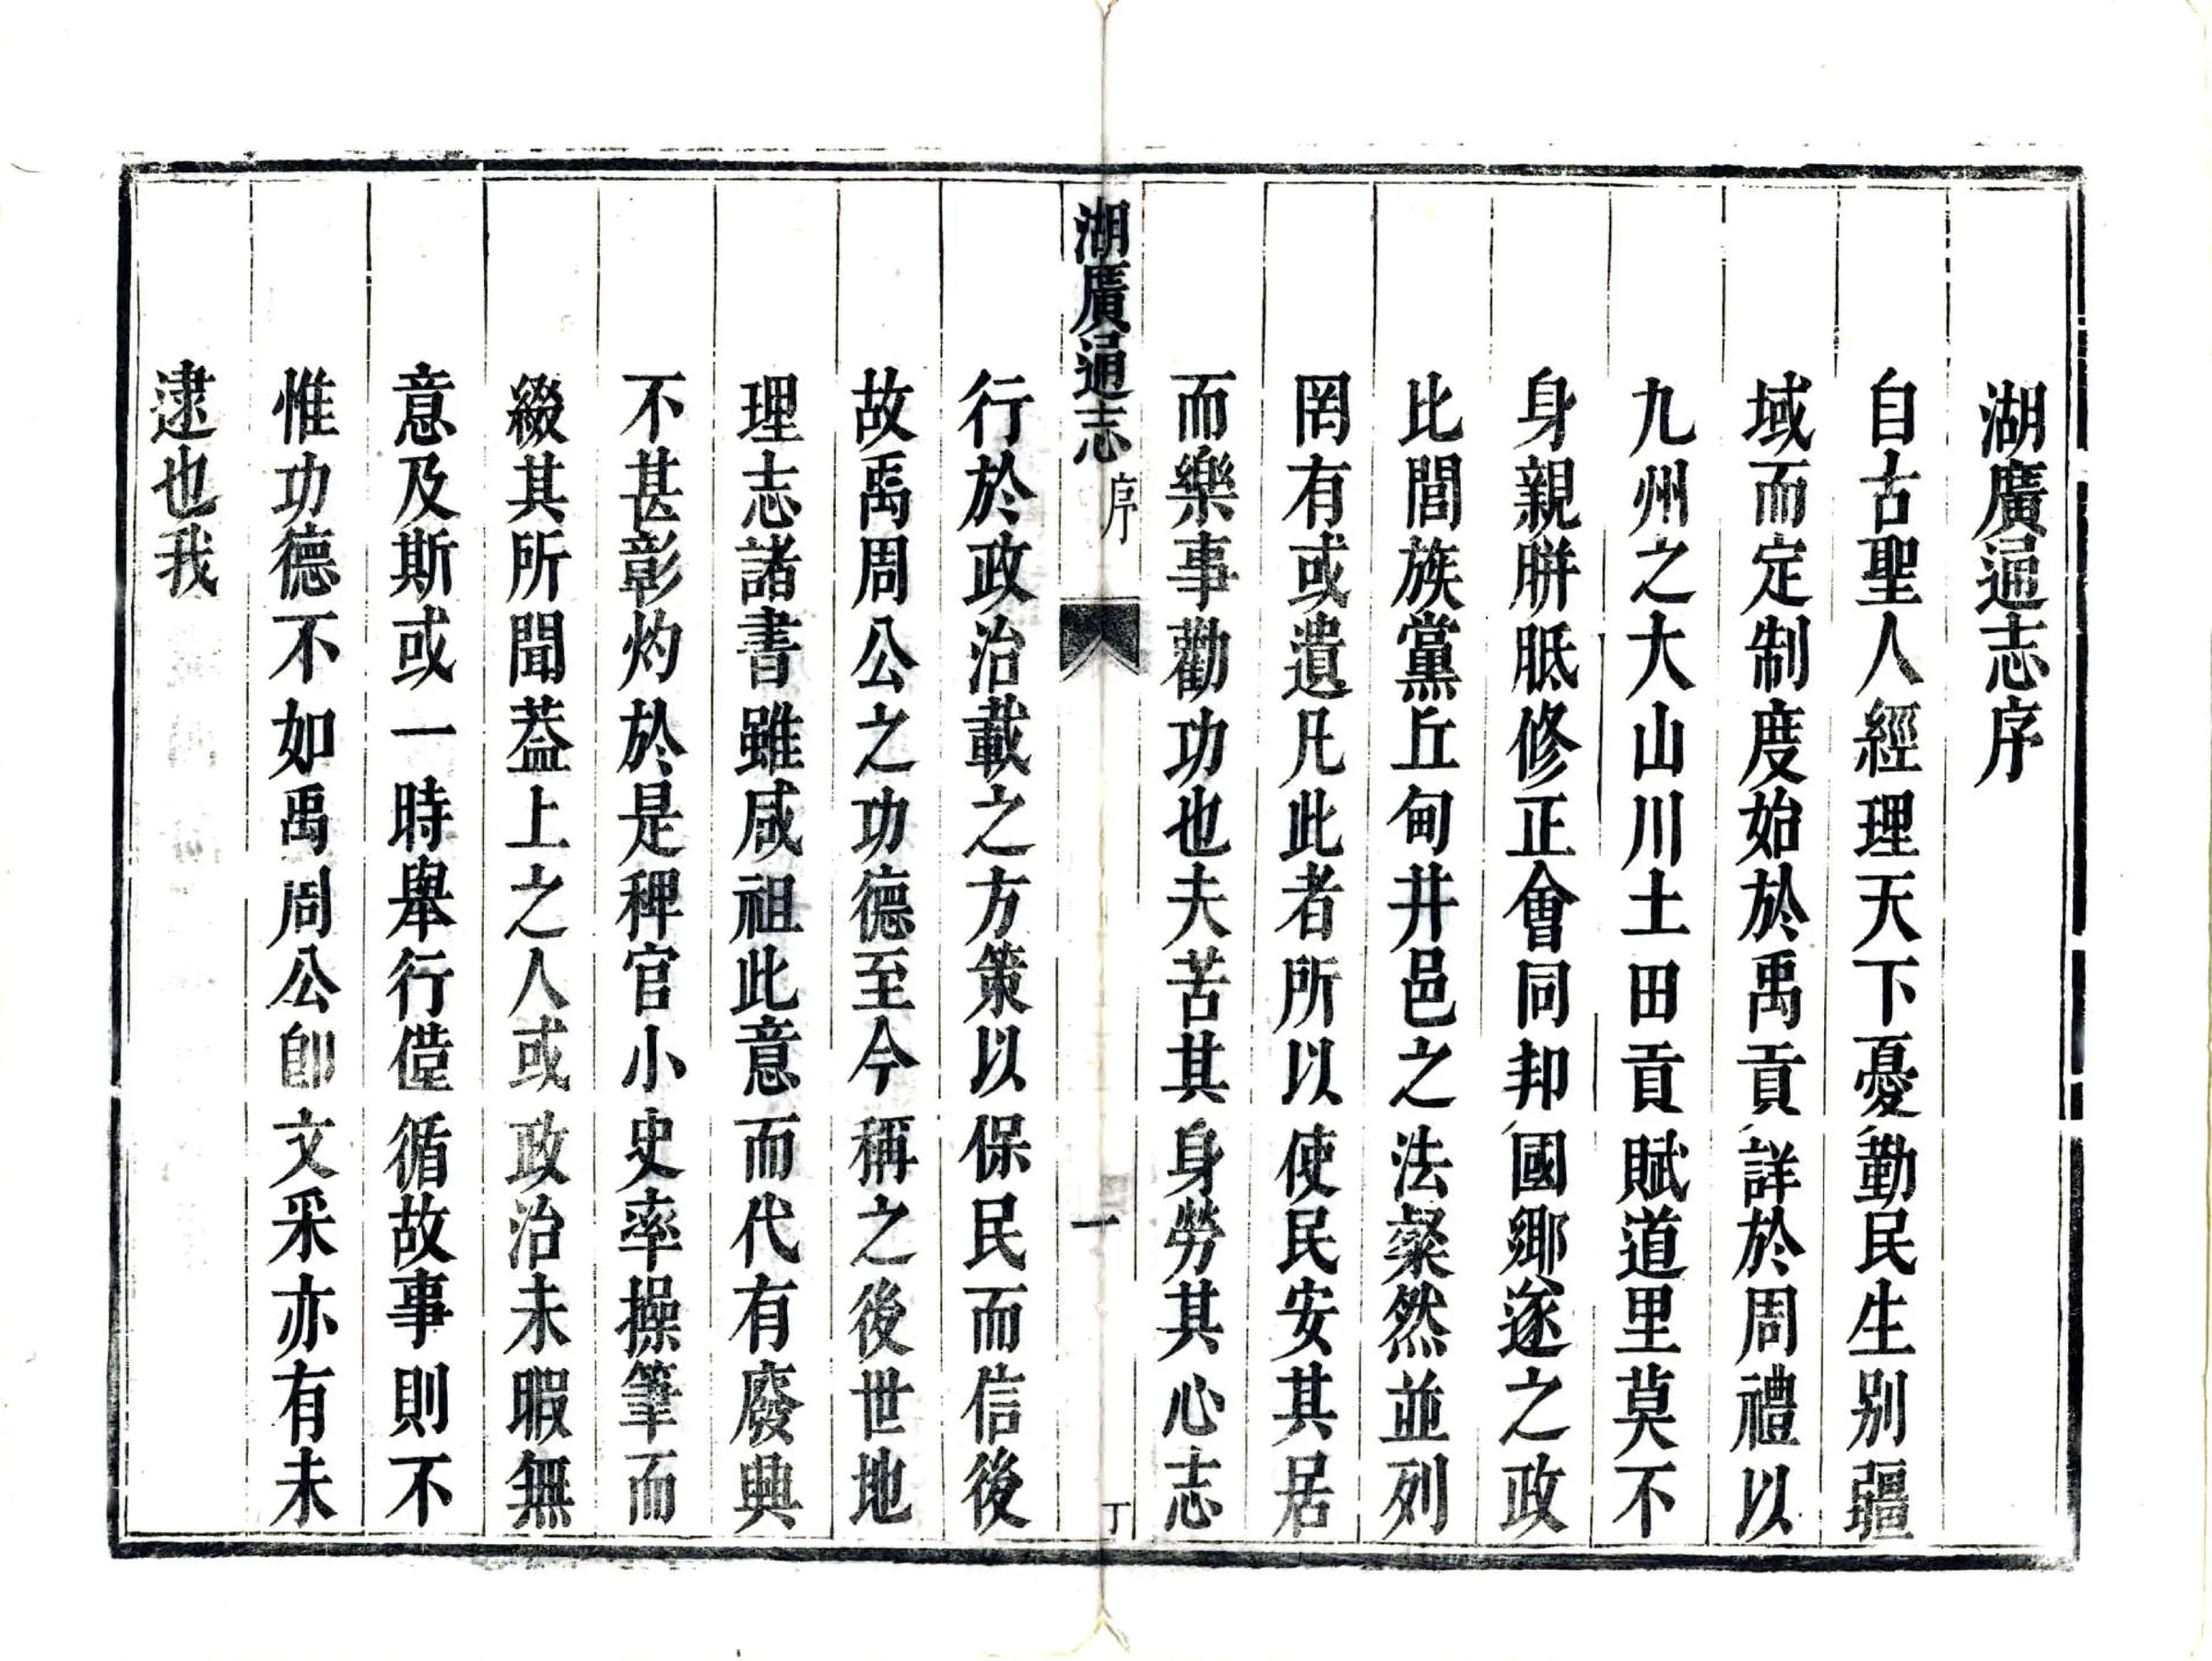 湖廣通志序
自古聖人經理天下憂勤民生别疆
域而定制度始於禹貢詳於周禮以
九州之大山川土田貢賦道里莫不
身親胼胝修正會同邦國鄉遂之政
比閭族黨丘甸井邑之法粲然並列
罔有或遺凡此者所以使民安其居
而樂事勸功也夫苦其身勞其心志
湖廣通志
序
一
丁
行於政治載之方策以保民而信後
故禹周公之功德至今稱之後世地
理志諸書雖咸祖此意而代有廢興
不甚彰灼於是稗官小史率操筆而
綴其所聞葢上之人或政治未暇無
意及斯或一時舉行僅循故事則不
惟功德不如禹周公卽文采亦有未
逮也我